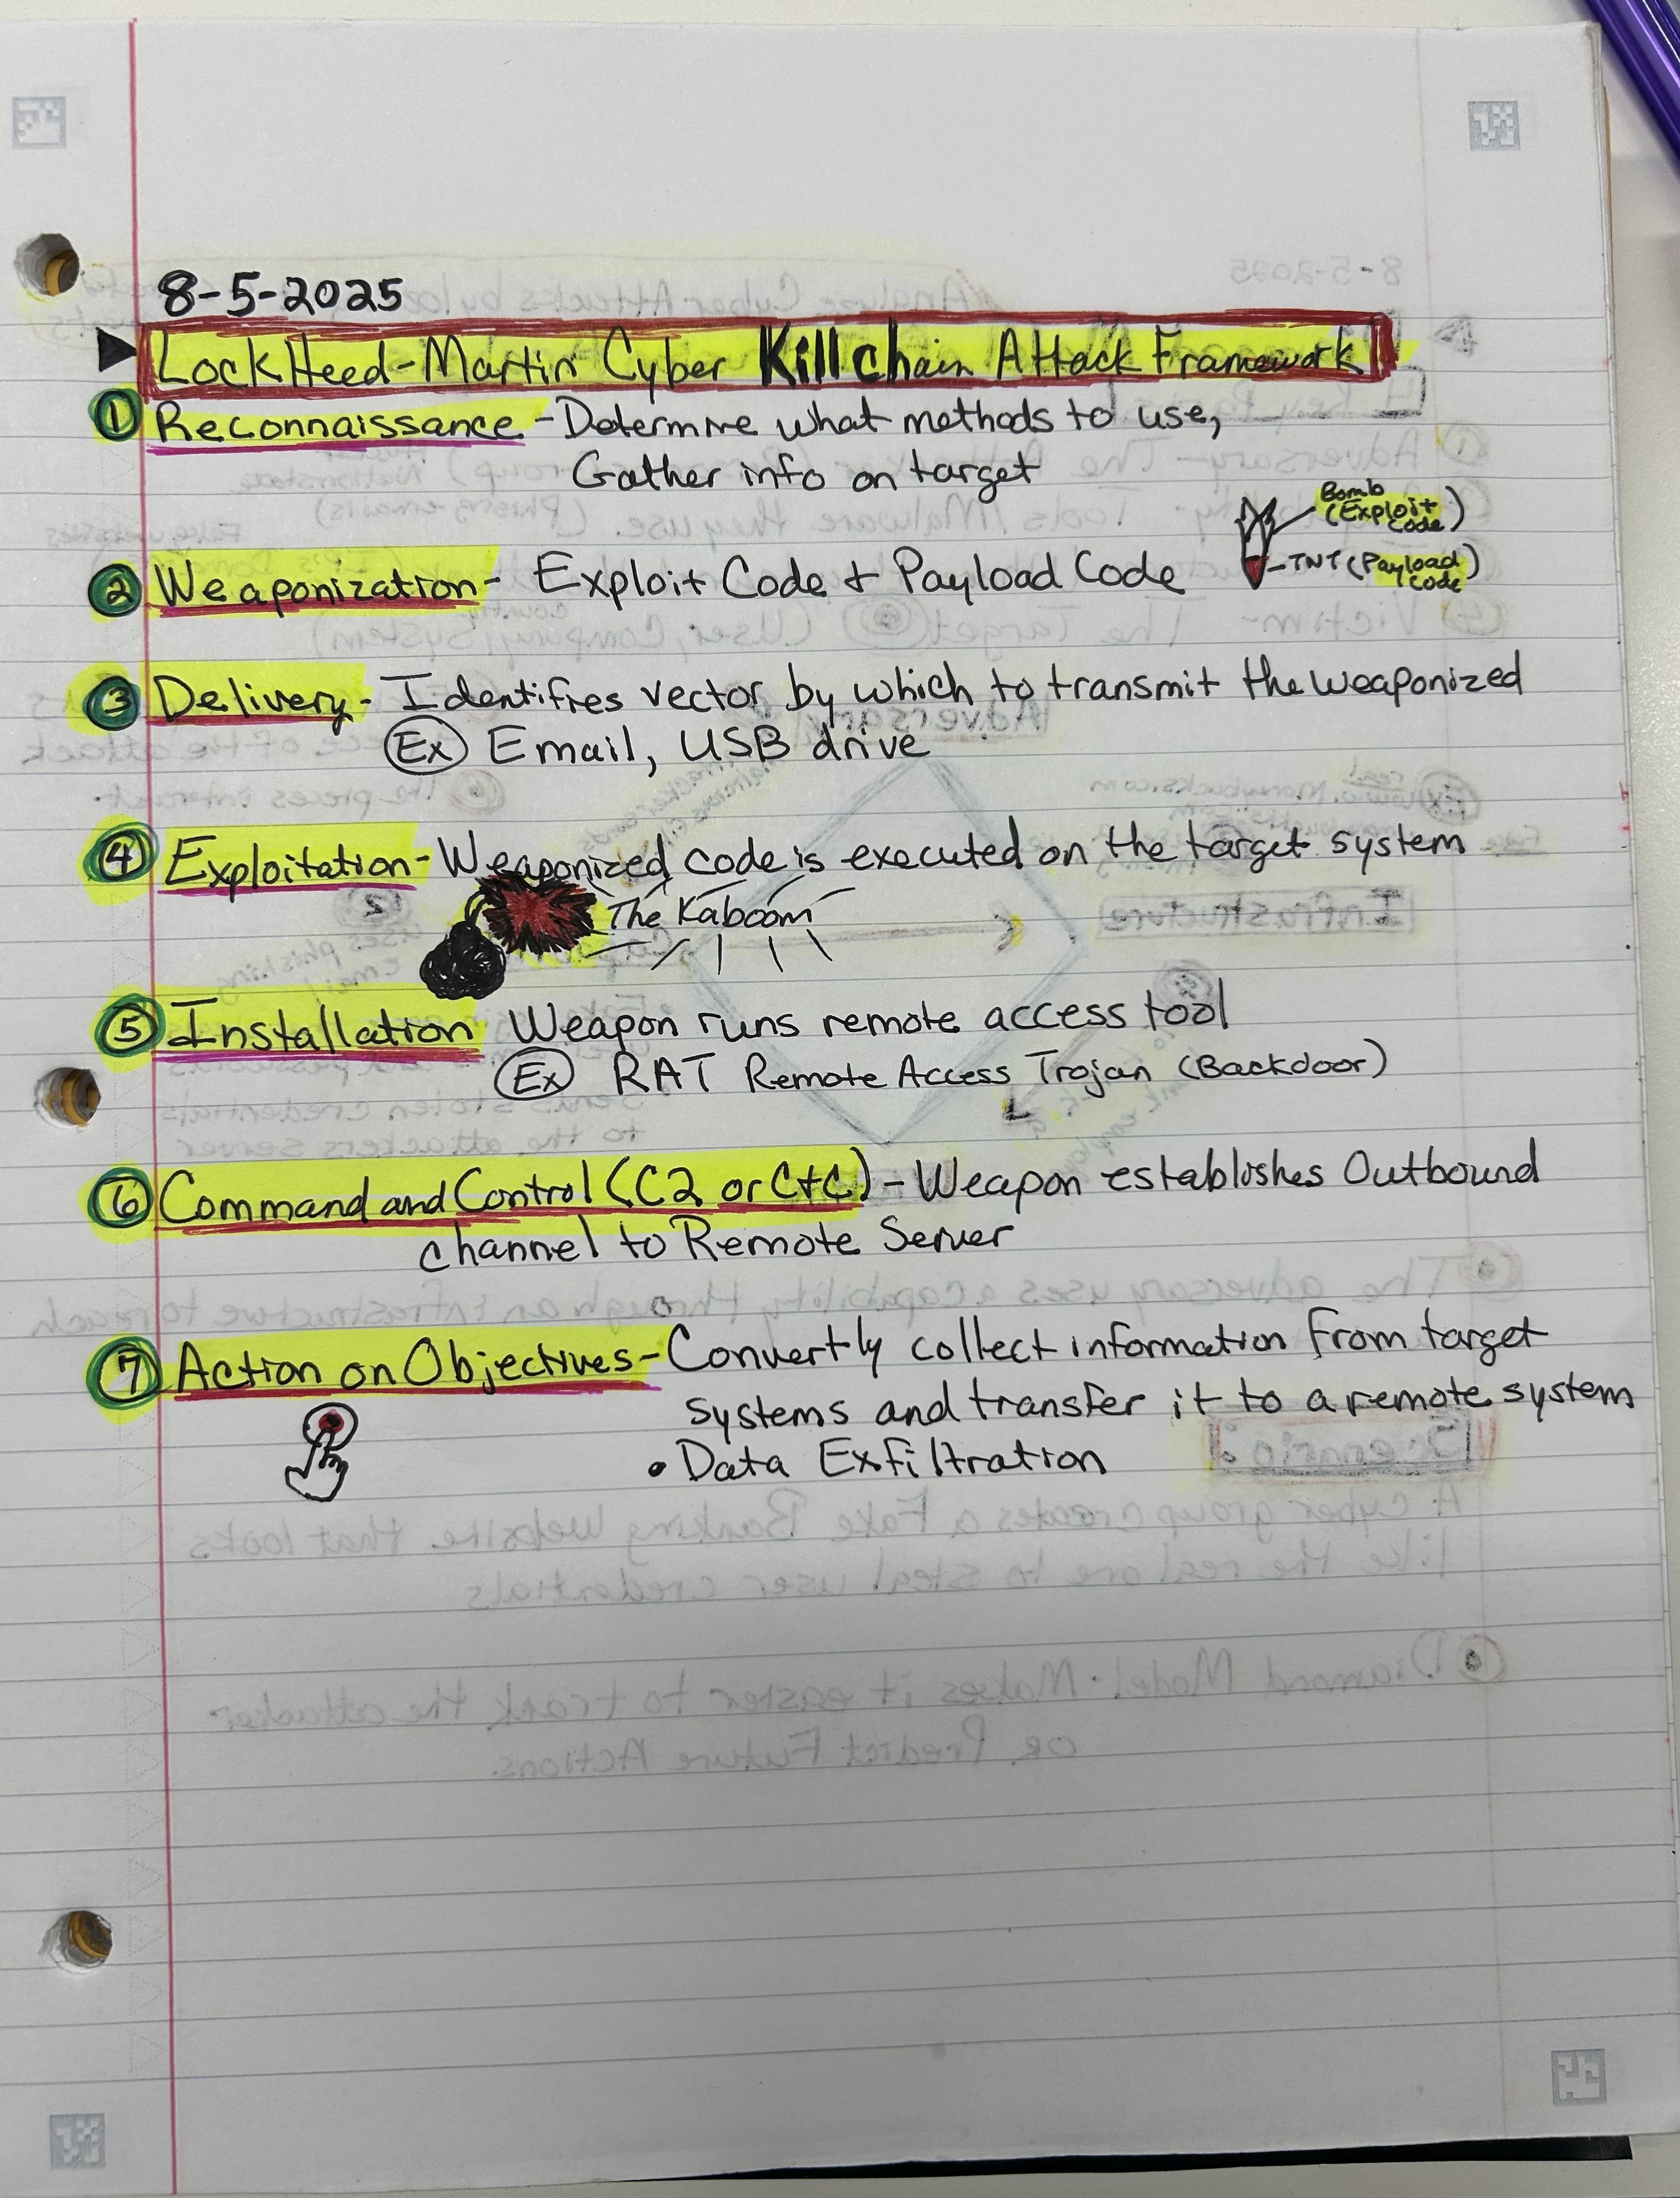 8-5-2025
LockHeed-Martin Cyber Kill chain Attack Framework
① Reconnaissance - Determine what methods to use,
Gather info on target
Bomb
(Exploit
Code)
② Weaponization - Exploit Code + Payload Code
TNT (Payload
Code)
③ Delivery - Identifies vector by which to transmit the weaponized
Ex Email, USB drive
④ Exploitation - Weaponized code is executed on the target system
The Kaboom
⑤ Installation Weapon runs remote access tool
Ex RAT Remote Access Trojan (Backdoor)
⑥ Command and Control (C2 or C+C) - Weapon establishes Outbound
channel to Remote Server
⑦ Action on Objectives - Convertly collect information from target
systems and transfer it to a remote system
• Data Exfiltration